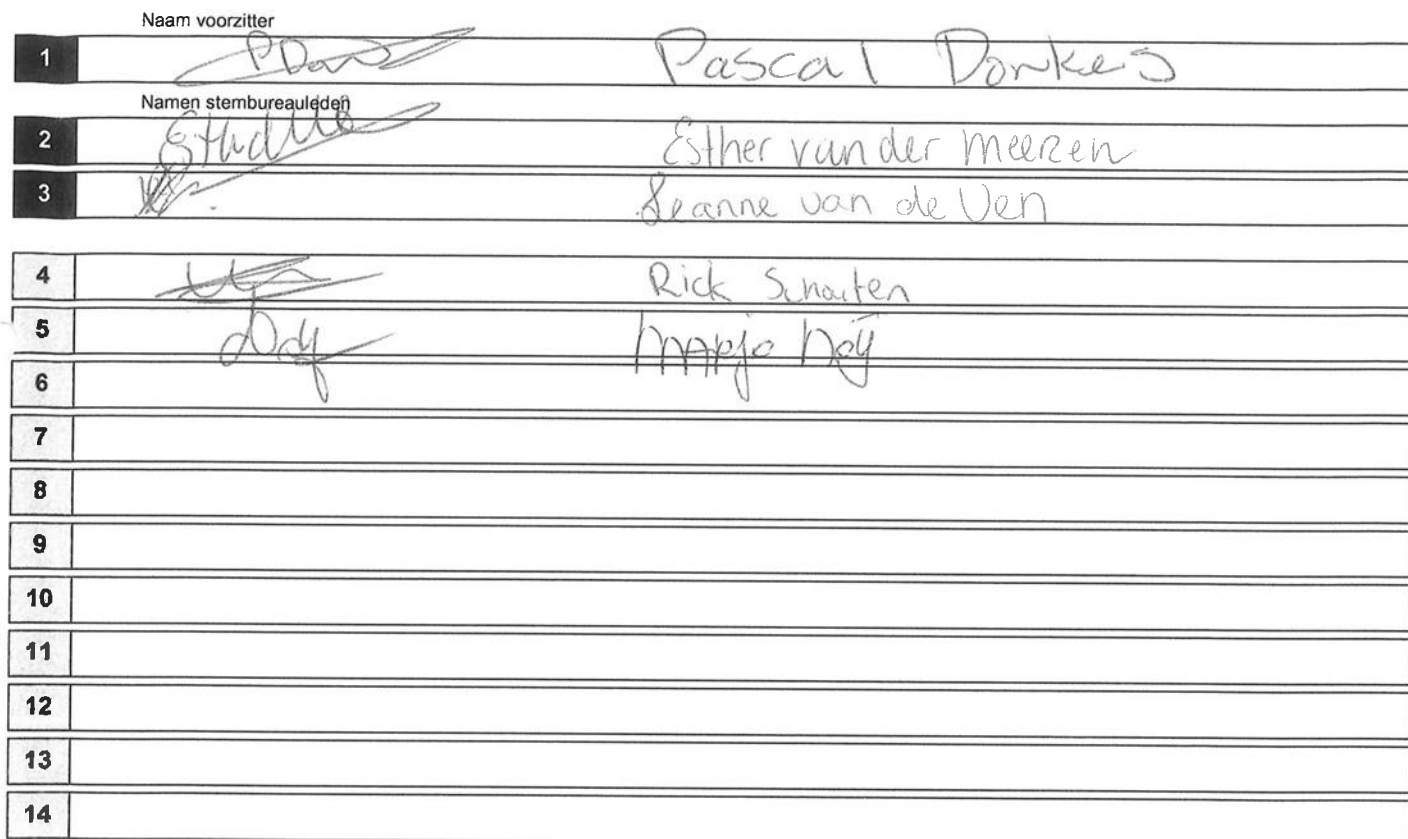 Naam voorzitter
1 Pascal Donkers
Namen stembureauleden
2 Esther van der Meeren
3 Leanne van de Ven
4 Rick Schouten
5 Marjo
6
7
8
9
10
11
12
13
14